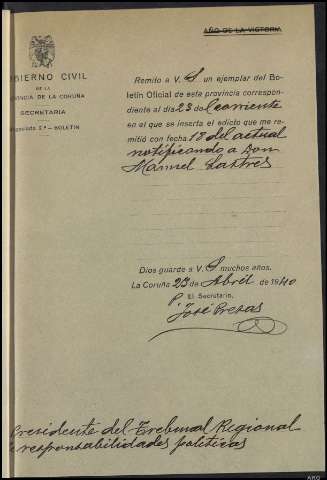 AÑO DE LA VICTORIA
OBIERNO CIVIL
DE LA
VINCIA DE LA CORUÑA
SECRETARIA
Negociado 5.º - BOLETÍN
Remito a V. S un ejemplar del Bo-
letín Oficial de esta provincia correspon-
diente al día 23 de Corriente
en el que se inserta el edicto que me re-
mitió con fecha 18 del actual
notificando a Don
Manuel Lastres
Dios guarde a V. S muchos años.
La Coruña 23 de Abril de 1940
P. El Secretario,
José Presas
Presidente del Tribunal Regional
responsabilidades políticas
ARG